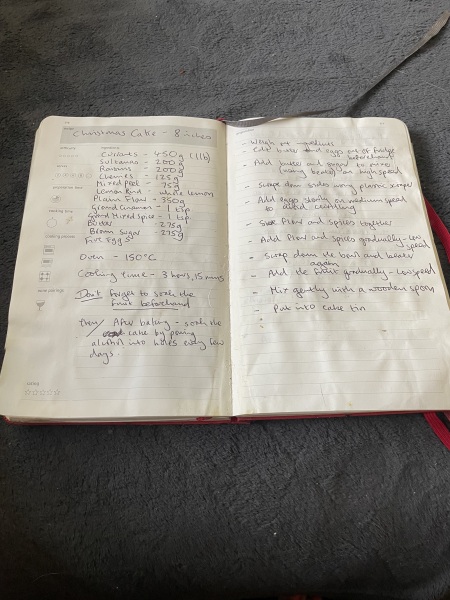 Christmas Cake - 8 inches
Currants - 450g (1lb)
Sultanas - 200g
Raisins - 200g
Cherries - 125g
Mixed Peel - 75g
Lemon Rind - whole lemon
Plain Flour - 350g
Ground Cinnamon - 1 tsp
Ground Mixed Spice - 1 tsp
Butter - 275g
Brown Sugar - 275g
Five Eggs
Oven - 150°C
Cooking time - 3 hours, 15 mins
Don't forget to soak the
fruit beforehand
After baking - soak the
cake by pouring
alcohol into holes every few
days.
- Weigh out
- Get butter and eggs out of fridge
beforehand
- Add butter and sugar to mixer
(using beater) on high speed
- Scrape down sides using plastic scraper
- Add eggs slowly on medium speed
to avoid curdling
- Sieve flour and spices together
- Add flour and spices gradually - low
speed
- Scrap down the bowl and beater
again
- Add the fruit gradually - low speed
- Mix gently with a wooden spoon
- Put into cake tin